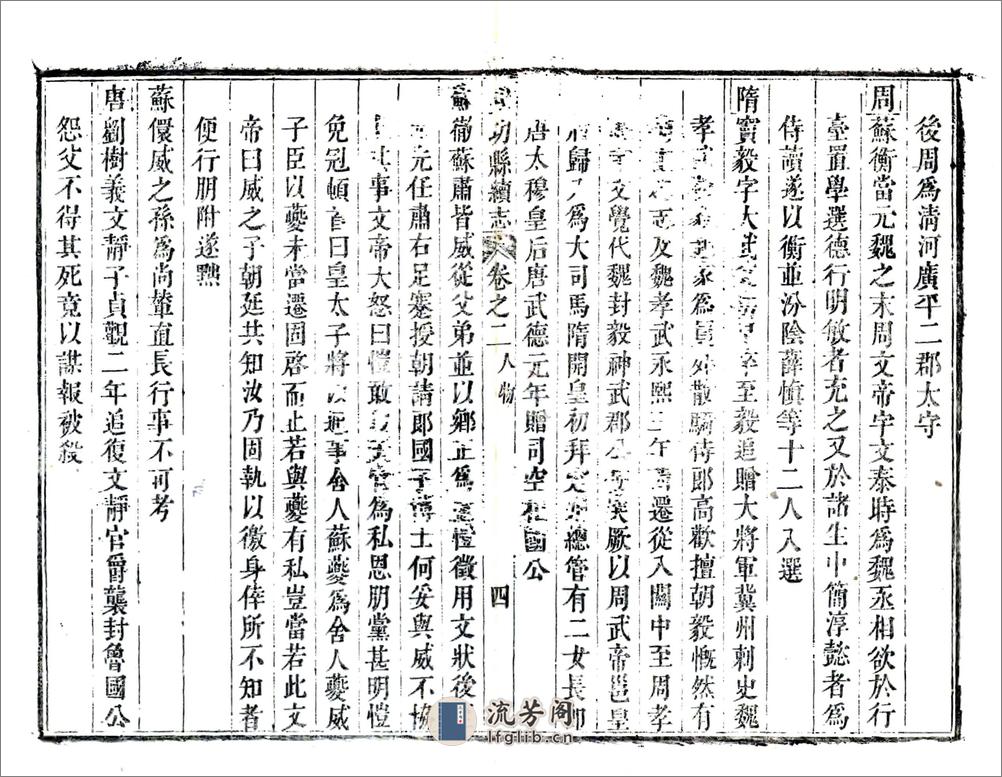 後周爲清河廣平二郡太守
周蘇衡當元魏之末周文帝宇文泰時爲魏丞相欲於行
臺置學選德行明敏者充之又於諸生中簡淳懿者爲
侍讀遂以衡並汾陰薛慎等十二人入選
隋竇毅字大武至毅追贈大將軍冀州刺史魏
孝家爲員外散騎侍郎高歡擅朝毅慨然有
及魏孝武永熙三年遷從入關中至周孝
文覺代魏封毅神武郡公突厥以周武帝邕皇
后歸入爲大司馬隋開皇初拜定州總管有二女長即
唐太穆皇后唐武德元年贈司空杞國公
功縣續志 卷之二 人物 四
蘇衛蘇肅皆威從父弟並以鄉正爲愷徵用文狀後
元任肅右足蹇授朝請郎國子博士何妥與威不協
事文帝大怒曰愷敢爲私恩朋黨甚明愷
免冠頓首曰皇太子將以通事舍人蘇夔爲舍人夔威
子臣以夔未當遷固啓而止若與夔有私豈當若此文
帝曰威之子朝廷共知汝乃固執以徼身倖所不知者
便行朋附遂黜
蘇儇威之孫爲尚輦直長行事不可考
唐劉樹義文靜子貞觀二年追復文靜官爵襲封魯國公
怨父不得其死竟以謀報被殺
流芳阁
lfglib.cn